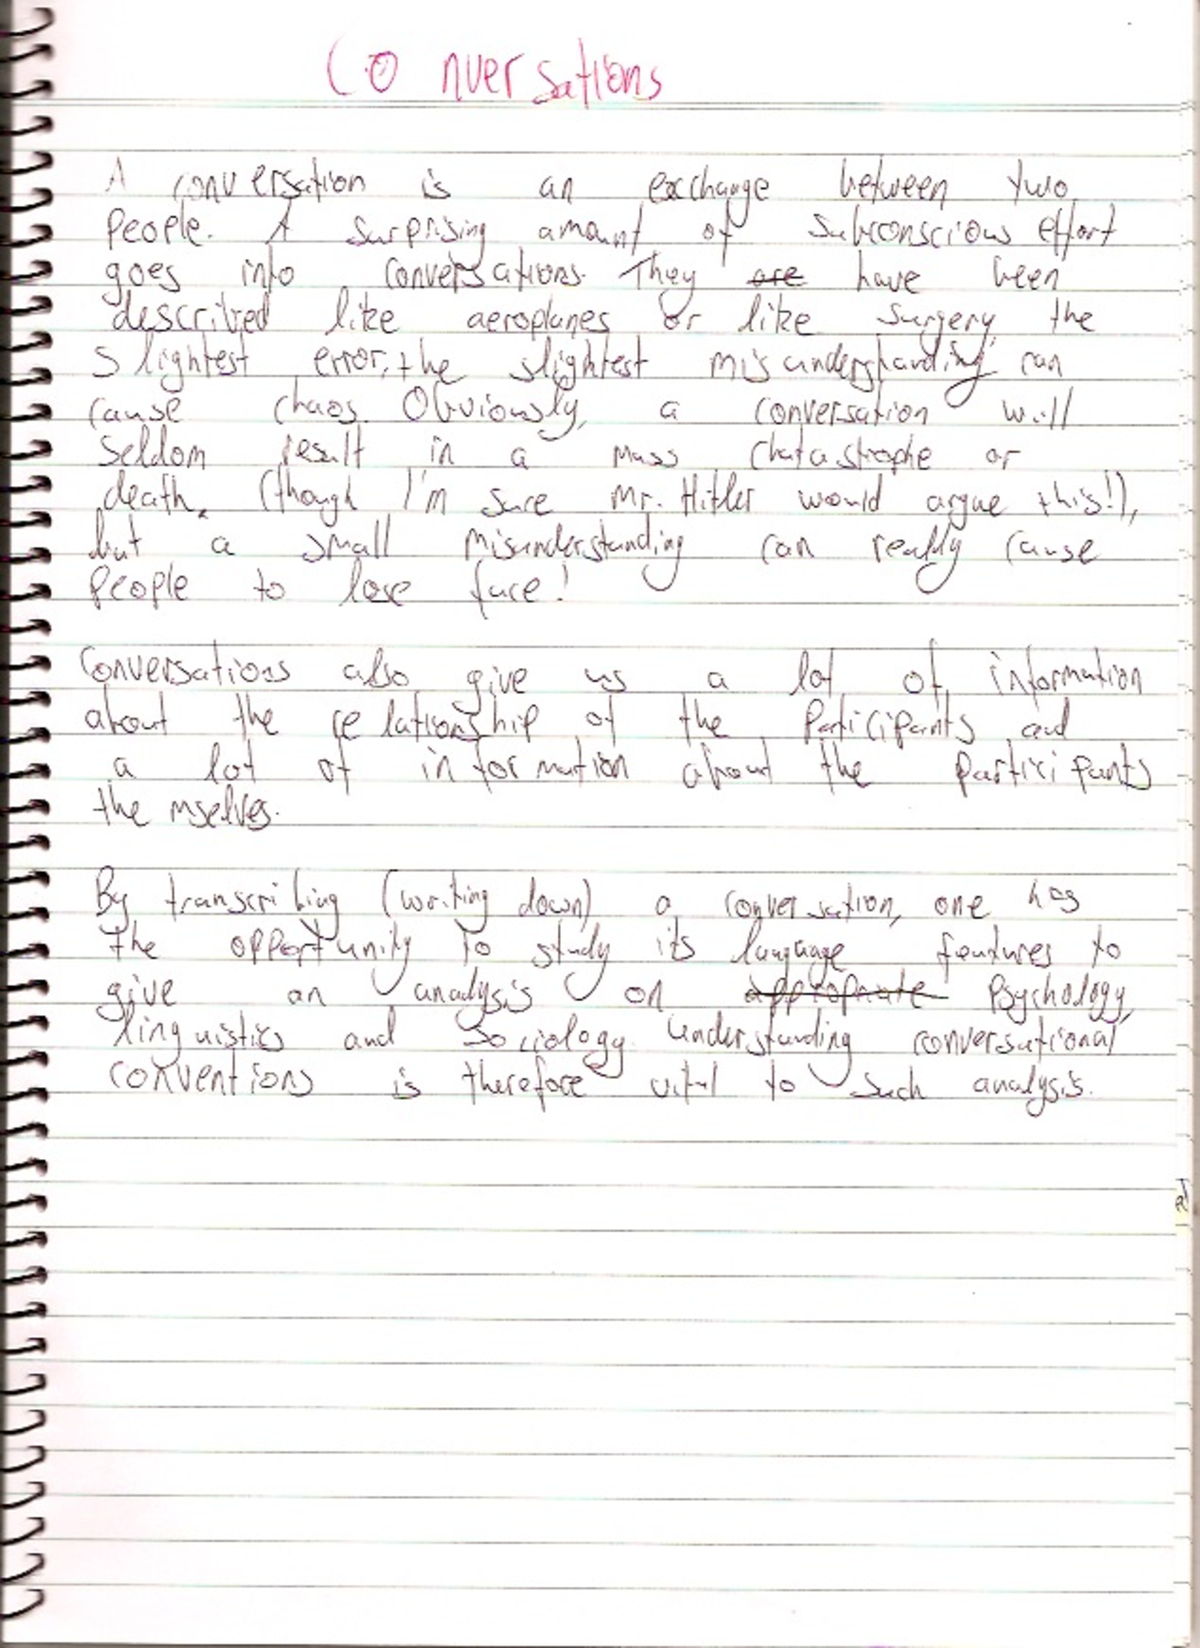 Conversations
A conversation is an exchange between two
people. A surprising amount of subconscious effort
goes into conversations. They are have been
described like aeroplanes or like surgery, the
slightest error, the slightest misunderstanding can
cause chaos. Obviously, a conversation will
seldom result in a mass chatastrophe or
death, (though I'm sure Mr. Hitler would argue this!),
but a small misunderstanding can really cause
people to lose face!
Conversations also give us a lot of information
about the relationship of the participants and
a lot of information about the participants
themselves.
By transcribing (writing down) a conversation, one has
the opportunity to study its language features to
give an analysis on appropriate Psychology,
linguistics and Sociology. Understanding conversational
conventions is therefore vital to such analysis.